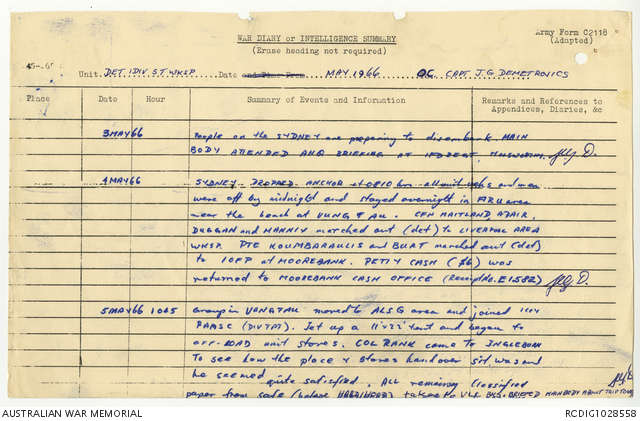 WAR DIARY or INTELLIGENCE SUMMARY
(Erase heading not required)
Army Form C2118
(Adapted)
Unit DET. 1DIV. S.T. WKSP. Date and Time From MAY 1966 OC CAPT J.G. DEMETROVICS
Place Date Hour Summary of Events and Information Remarks and References to Appendices, Diaries, &c
3MAY66 People on the SYDNEY are preparing to disembark. MAIN
BODY ATTENDED BRIEFING AT
4MAY66 SYDNEY DROPPED ANCHOR at 0810 hrs all unit and men
were off by midnight and stayed overnight in area
near the beach at VUNG TAU. CFN MAITLAND, ADAIR,
DUGGAN and marched out (det) to LIVERPOOL AREA
WKSP. PTE KOUMBARAULIS and BURT marched out (det)
to 10FP at MOOREBANK. PETTY CASH ($6) was
returned to MOOREBANK CASH OFFICE (Receipt No. E1582)
5MAY66 1005 Group in VUNGTAU moved to ALSG area and joined
Set up a tent and began to
off-LOAD unit stores. COL RANK came to INGLEBURN
To see how the place & stores handover sit. was and
he seemed quite satisfied. ALL remaining classified
paper from safe taken to BRIEFED MAINBODY ABOUT
AUSTRALIAN WAR MEMORIAL
RCDIG1028558